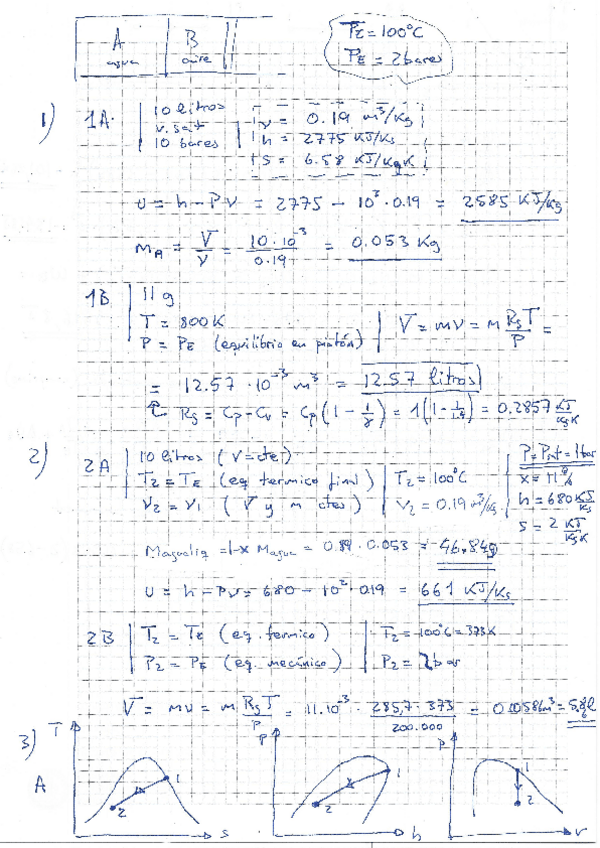 A
agua
B
aire
T_E = 100°C
P_E = 2 bares
1) 1A.
10 litros
v. sat
10 bares
v = 0.19 m³/Kg
h = 2775 KJ/Kg
s = 6.58 KJ/KgK
U = h - Pv = 2775 - 10³·0.19 = 2585 KJ/Kg
m_A = V/v = 10·10⁻³/0.19 = 0.053 Kg
1B
11 g
T = 800 K
P = P_E (equilibrio en pistón)
V = mv = m RgT/P =
= 12.57·10⁻³ m³ = 12.57 litros
Rg = Cp - Cv = Cp(1 - 1/γ) = 1(1 - 1/1.4) = 0.2857 KJ/KgK
2) 2A
10 litros (V = cte)
T2 = T_E (eq termico final)
v2 = v1 (V y m ctes)
T2 = 100°C
v2 = 0.19 m³/Kg
P = Psat = 1 bar
x = 11%
h = 680 KJ/Kg
s = 2 KJ/KgK
m agua liq = 1-x m agua = 0.89·0.053 = 46.84g
U = h - Pv = 680 - 10²·0.19 = 661 KJ/Kg
2B
T2 = T_E (eq. termico)
P2 = P_E (eq. mecánico)
T2 = 100°C = 373K
P2 = 2 bar
V = mv = m RgT/P = 11·10⁻³ · 285,7·373/200.000 = 0.00586m³ = 5,86l
3)
A
T
1
2
s
P
1
2
h
P
1
2
v